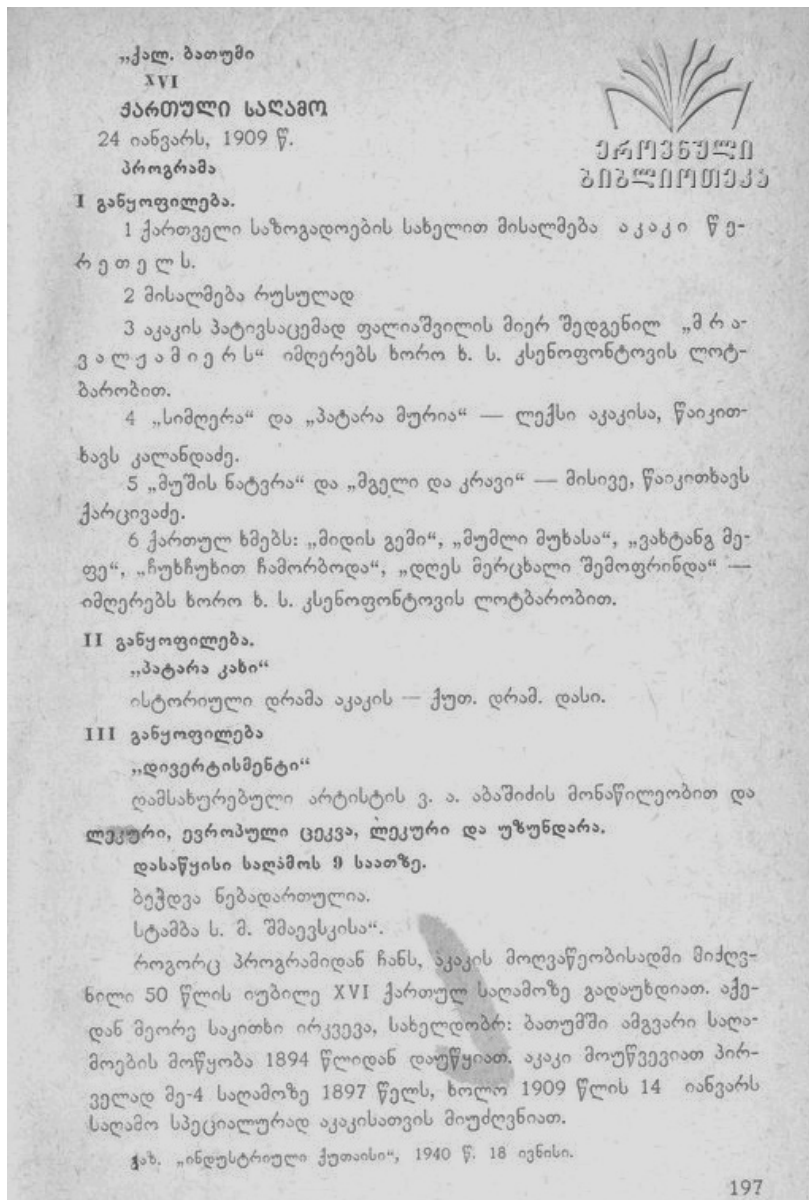 „ქალ. ბათუმი
XVI
ქართული საღამო
24 იანვარს, 1909 წ.
პროგრამა
ეროვნული
ბიბლიოთეკა
I განყოფილება.
1 ქართველი საზოგადოების სახელით მისალმება ა კ ა კ ი წ ე-
რ ე თ ე ლ ს.
2 მისალმება რუსულად
3 აკაკის პატივსაცემად ფალიაშვილის მიერ შედგენილ „მ რ ა-
ვ ა ლ ჟ ა მ ი ე რ ს“ იმღერებს ხორო ხ. ს. კსენოფონტოვის ლოტ-
ბარობით.
4 „სიმღერა“ და „პატარა მურია“ — ლექსი აკაკისა, წაიკით-
ხავს კალანდაძე.
5 „მუშის ნატვრა“ და „მგელი და კრავი“ — მისივე, წაიკითხავს
ქარცივაძე.
6 ქართულ ხმებს: „მიდის გემი“, „მუმლი მუხასა“, „ვახტანგ მე-
ფე“, „ჩუხჩუხით ჩამორბოდა“, „დღეს მერცხალი შემოფრინდა“ —
იმღერებს ხორო ხ. ს. კსენოფონტოვის ლოტბარობით.
II განყოფილება.
„პატარა კახი“
ისტორიული დრამა აკაკის — ქუთ. დრამ. დასი.
III განყოფილება
„დივერტისმენტი“
ღამსახურებული არტისტის ვ. ა. აბაშიძის მონაწილეობით და
ლეკური, ევროპული ცეკვა, ლეკური და უზუნდარა.
დასაწყისი საღამოს 9 საათზე.
ბეჭდვა ნებადართულია.
სტამბა ს. მ. შმაევსკისა“.
როგორც პროგრამიდან ჩანს, აკაკის მოღვაწეობისადმი მიძღვ-
ნილი 50 წლის იუბილე XVI ქართულ საღამოზე გადაუხდიათ. აქე-
დან მეორე საკითხი ირკვევა, სახელდობრ: ბათუმში ამგვარი საღა-
მოების მოწყობა 1894 წლიდან დაუწყიათ. აკაკი მოუწვევიათ პირ-
ველად მე-4 საღამოზე 1897 წელს, ხოლო 1909 წლის 14 იანვარს
საღამო სპეციალურად აკაკისათვის მიუძღვნიათ.
გაზ. „ინდუსტრიული ქუთაისი“, 1940 წ. 18 ივნისი.
197